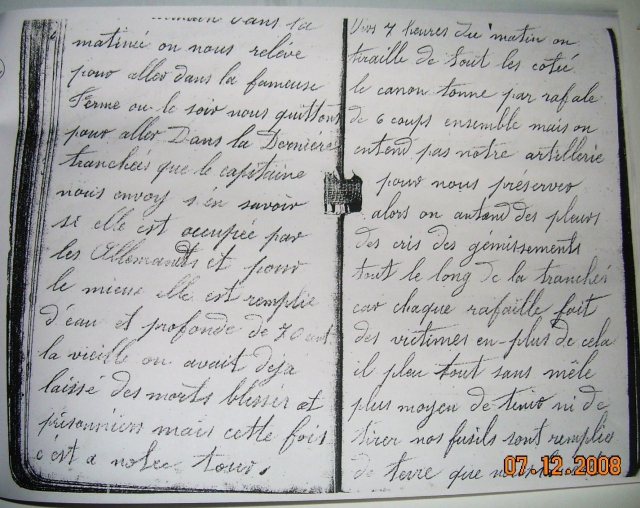 dans la
matinée on nous relève
pour aller dans la fameuse
Ferme ou le soir nous quittons
pour aller Dans la Dernière
tranchées que le capitaine
nous envoy s'en savoir
si elle est occupée par
les Allemands et pour
le mieux elle est remplie
d'eau et profonde de 70 cent
la vieille on avait deja
laissé des morts blesser et
prisonniers mais cette fois
c'est a notre tour.
Vers 7 heures du matin on
tiraille de tout les coté
le canon tonne par rafale
de 6 coups ensemble mais on
entend pas notre artillerie
pour nous préserver
alors on entend des pleurs
des cris des gémissements
tout le long de la tranchés
car chaque rafaille fait
des victimes en-plus de cela
il pleu tout sans mêle
plus moyen de tenir ni de
tirer nos fusils sont remplis
de terre que
07.12.2008